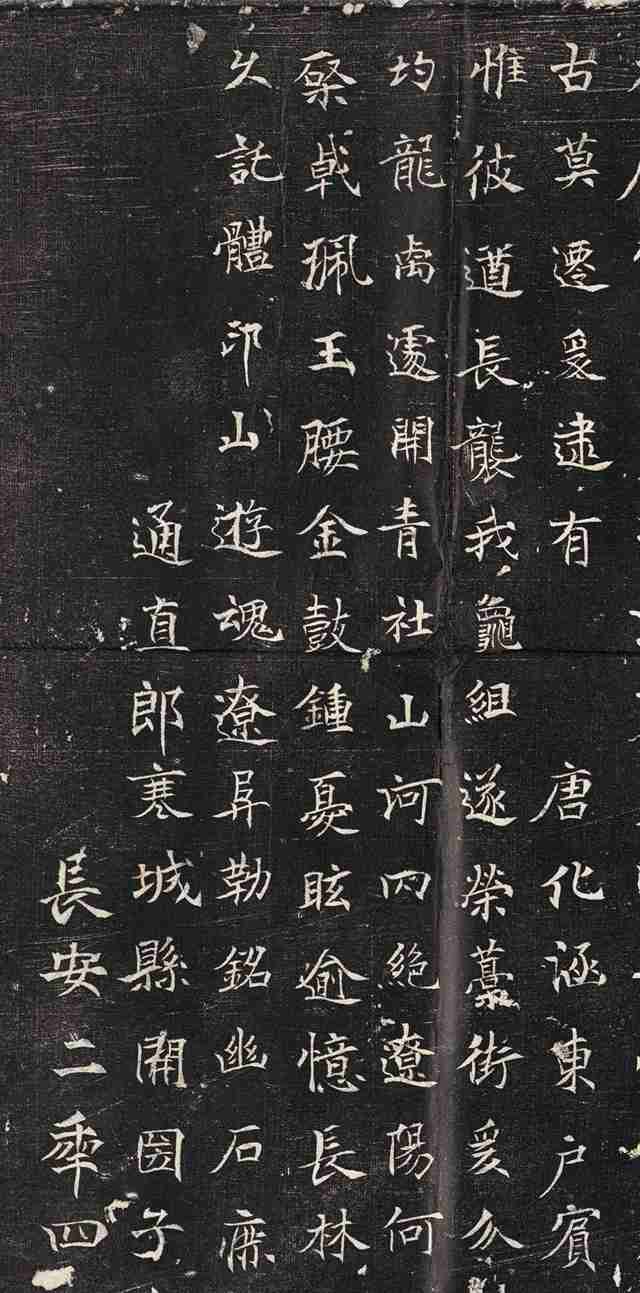 古莫遷爰逮有 唐化涵東戶賓
惟彼遒長襲我龜組遂榮藁街爰分
均龍卨遽開青社山河内絕遼陽何
棨戟珮王腰金鼓鍾憂眩逾憶長林
久託體邙山遊魂遼昇勒銘幽石庶
通直郎襄城縣開圀子
長安二年四